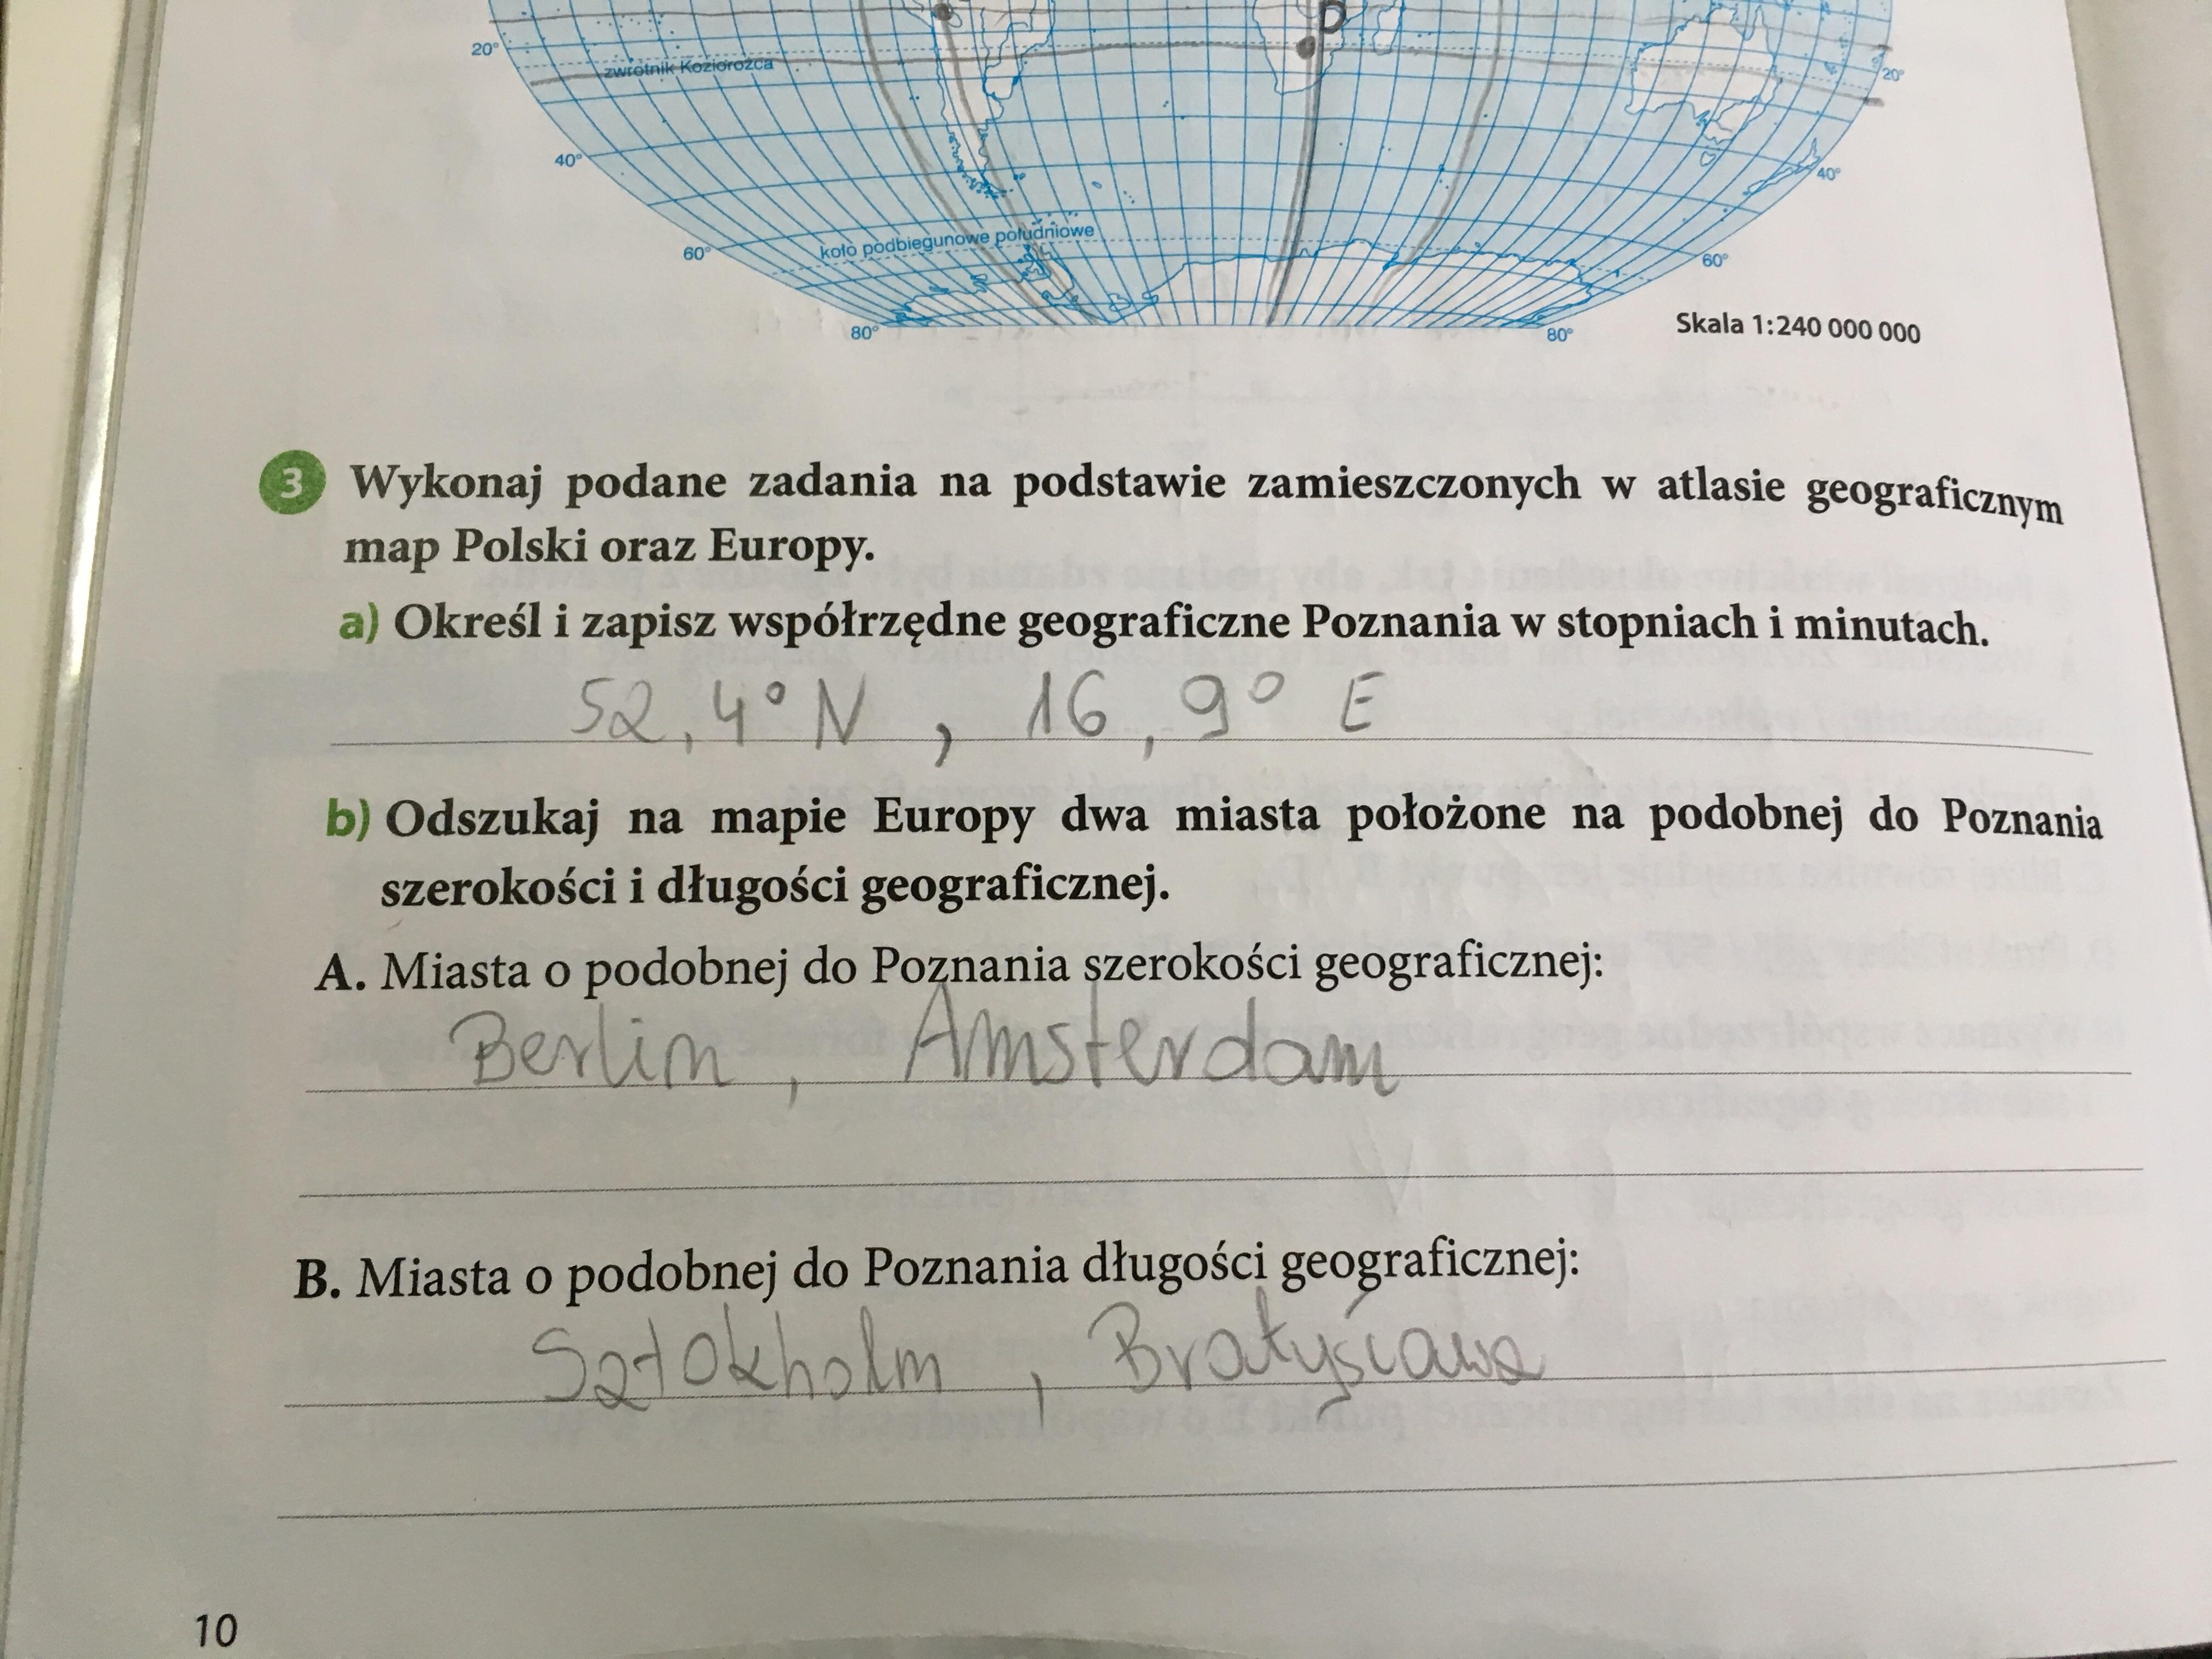 D
20°
zwrotnik Koziorożca
20°
40°
40°
60°
koło podbiegunowe południowe
60°
80°
80°
Skala 1:240 000 000
3 Wykonaj podane zadania na podstawie zamieszczonych w atlasie geograficznym
map Polski oraz Europy.
a) Określ i zapisz współrzędne geograficzne Poznania w stopniach i minutach.
52,4° N , 16,9° E
b) Odszukaj na mapie Europy dwa miasta położone na podobnej do Poznania
szerokości i długości geograficznej.
A. Miasta o podobnej do Poznania szerokości geograficznej:
Berlin, Amsterdam
B. Miasta o podobnej do Poznania długości geograficznej:
Sztokholm, Bratysława
10